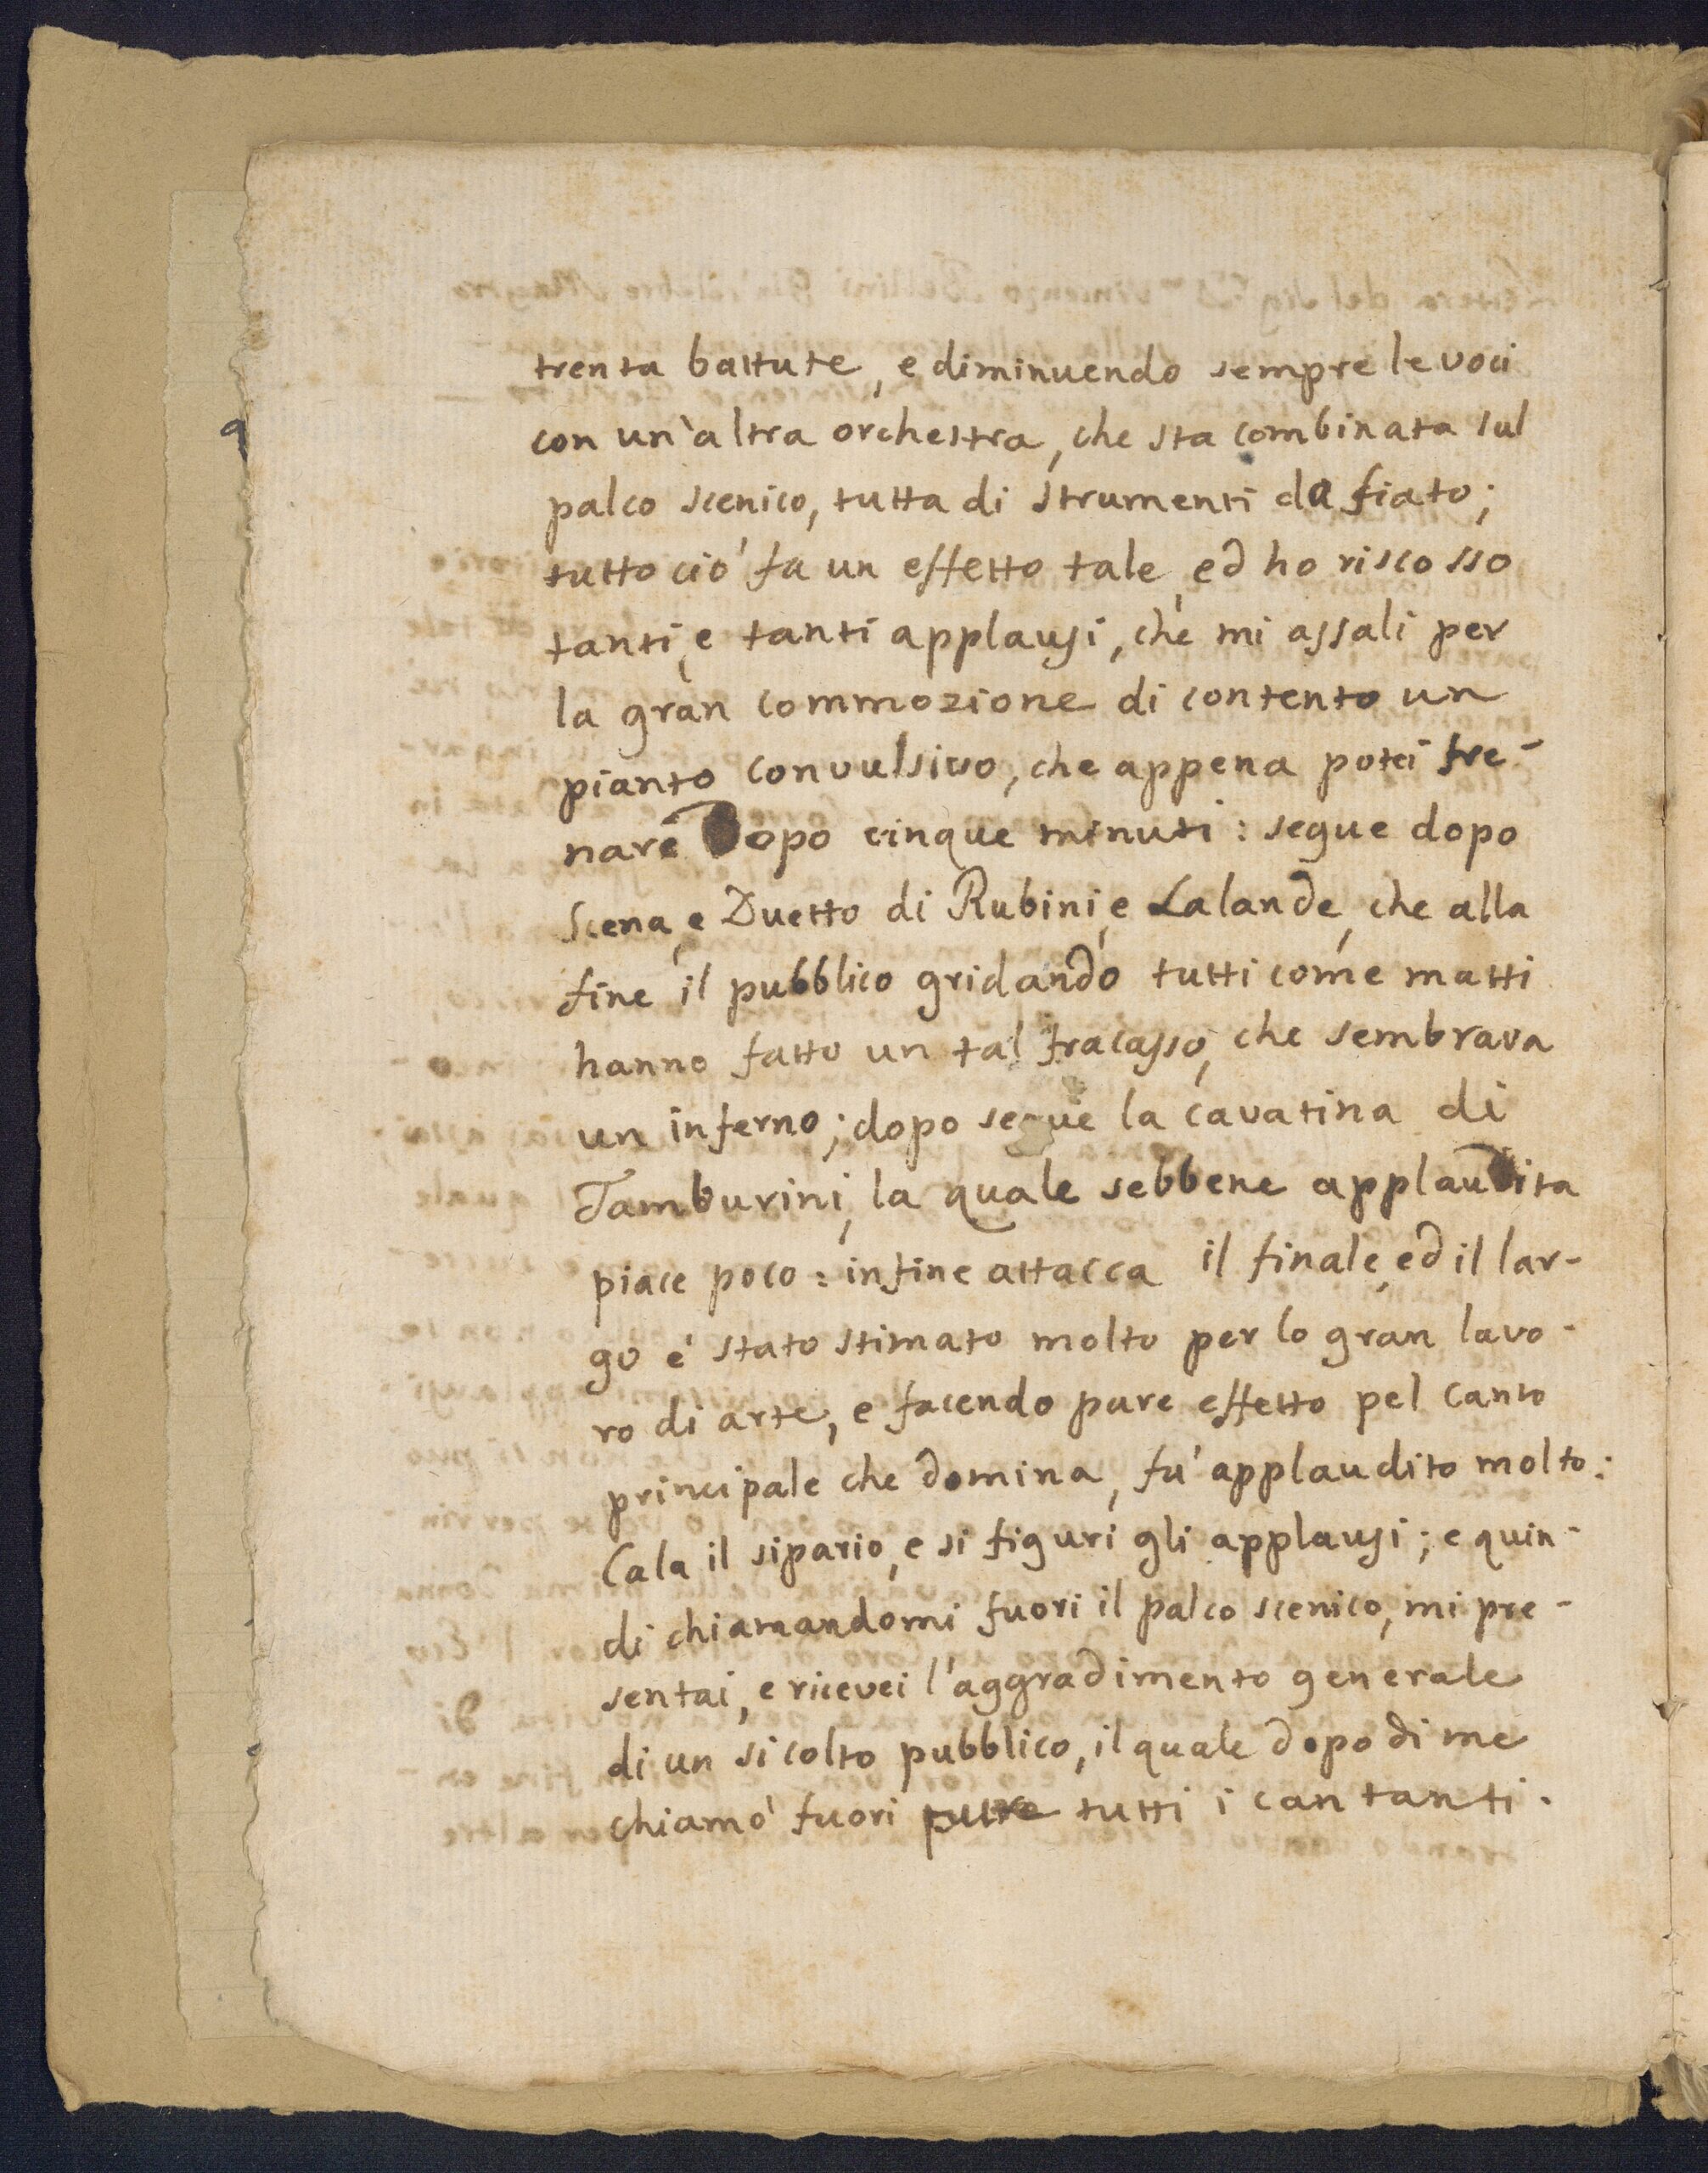 trenta battute, e diminuendo sempre le voci
con un'altra orchestra, che sta combinata sul
palco scenico, tutta di strumenti da fiato;
tutto ciò fa un effetto tale, ed ho riscosso
tanti, e tanti applausi, che mi assali per
la gran commozione di contento un
pianto convulsivo, che appena potei fre-
nare dopo cinque minuti: segue dopo
Scena, e Duetto di Rubini, e Lalande, che alla
fine il pubblico gridando tutti come matti
hanno fatto un tal fracasso, che sembrava
un inferno; dopo segue la cavatina di
Tamburini, la quale sebbene applaudita
piace poco: infine attacca il finale, ed il lar-
go è stato stimato molto per lo gran lavo-
ro di arte, e facendo pure effetto pel canto
principale che domina, fù applaudito molto:
Cala il sipario, e si figuri gli applausi; e quin-
di chiamandomi fuori il palco scenico, mi pre-
sentai, e ricevei l'aggradimento generale
di un si colto pubblico, il quale dopo di me
chiamò fuori pure tutti i cantanti.